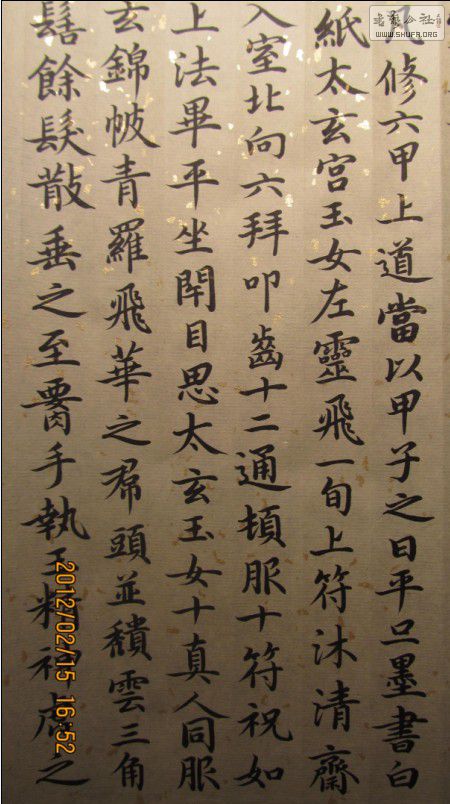 凡修六甲上道當以甲子之日平旦墨書白
紙太玄宮玉女左靈飛一旬上符沐清齋
入室北向六拜叩齒十二通頓服十符祝如
上法畢平坐閇目思太玄玉女十真人同服
玄錦帔青羅飛華之帬頭並穨雲三角
髻餘髮散垂之至要手執玉精神虎之
書藝公社
WWW.SHUFA.ORG
2012/02/15 16:52